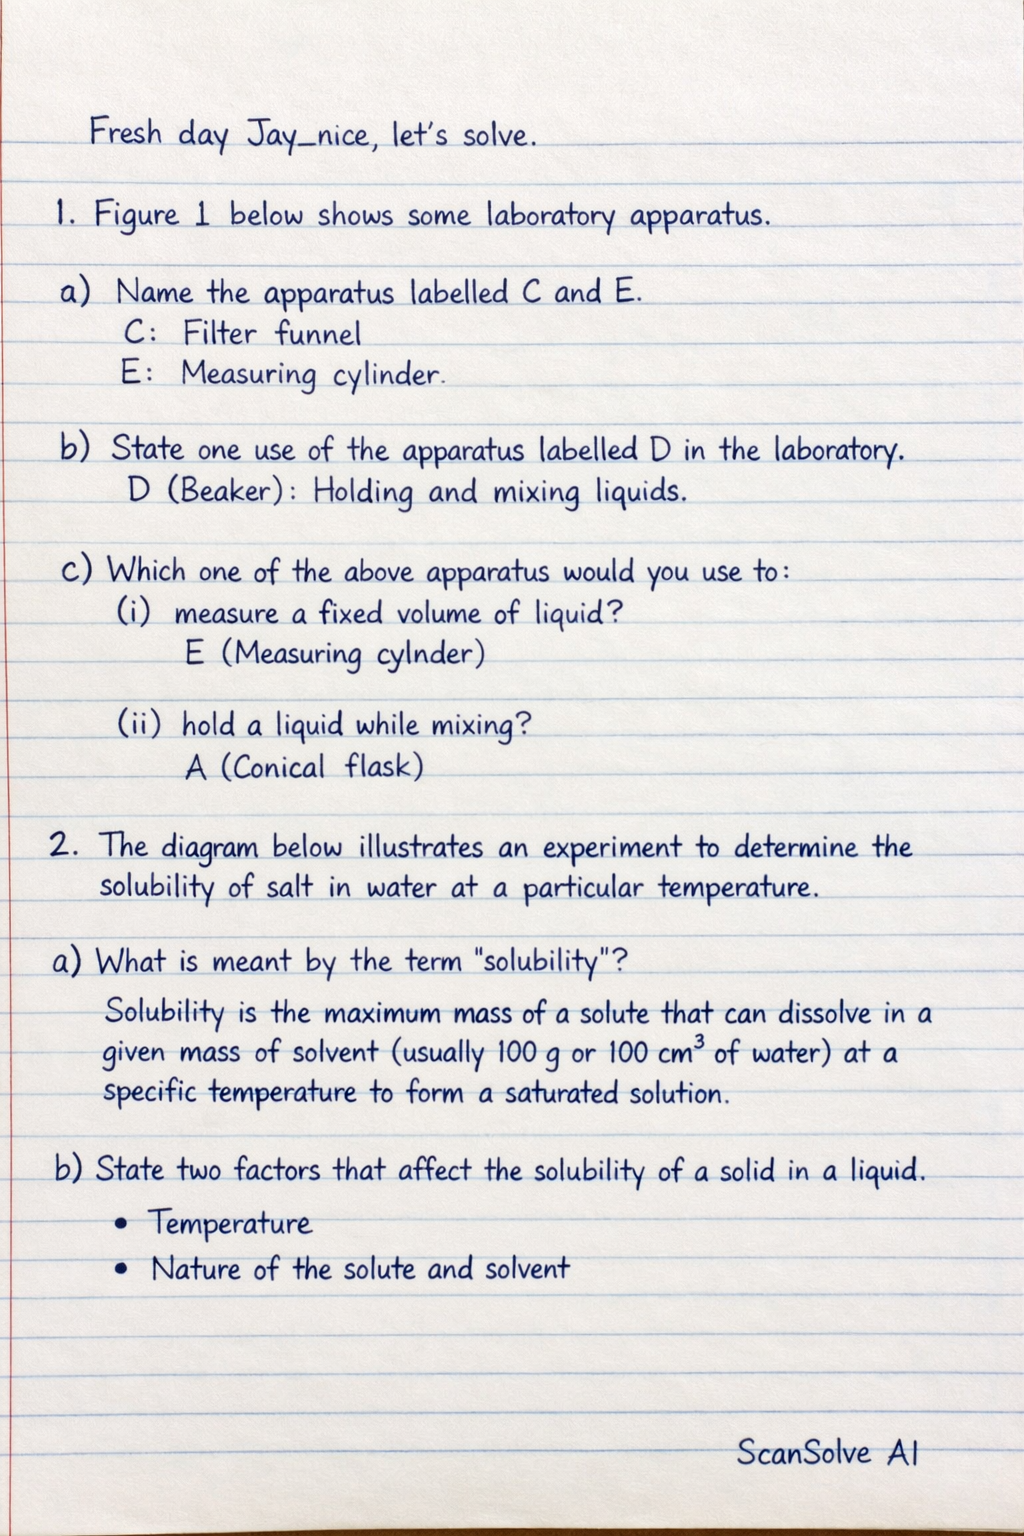 Fresh day Jay_nice, let's solve.
1. Figure 1 below shows some laboratory apparatus.
a) Name the apparatus labelled C and E.
C: Filter funnel
E: Measuring cylinder.
b) State one use of the apparatus labelled D in the laboratory.
D (Beaker): Holding and mixing liquids.
c) Which one of the above apparatus would you use to:
(i) measure a fixed volume of liquid?
E (Measuring cylnder)
(ii) hold a liquid while mixing?
A (Conical flask)
2. The diagram below illustrates an experiment to determine the
solubility of salt in water at a particular temperature.
a) What is meant by the term "solubility"?
Solubility is the maximum mass of a solute that can dissolve in a
given mass of solvent (usually 100 g or 100 cm³ of water) at a
specific temperature to form a saturated solution.
b) State two factors that affect the solubility of a solid in a liquid.
• Temperature
• Nature of the solute and solvent
ScanSolve AI